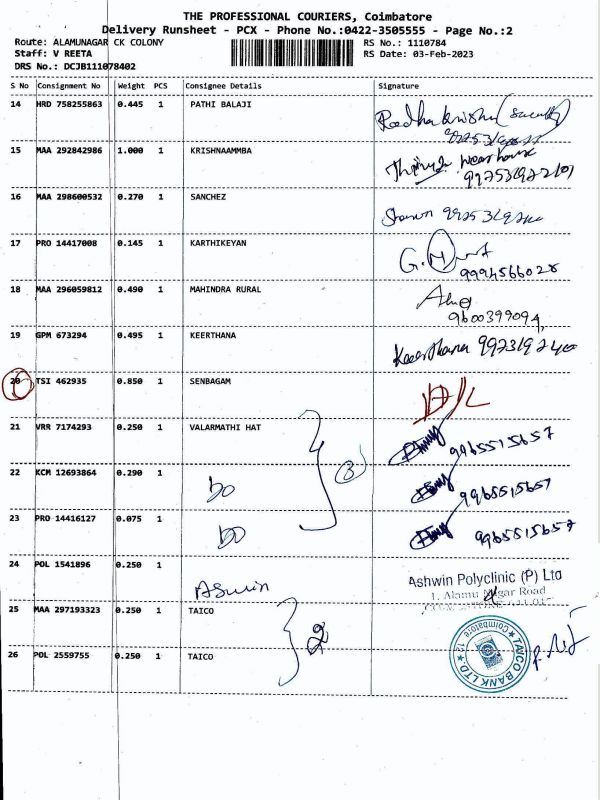 THE PROFESSIONAL COURIERS, Coimbatore
Delivery Runsheet - PCX - Phone No.:0422-3505555 - Page No.:2
Route: ALAMUNAGAR CK COLONY
RS No.: 1110784
Staff: V REETA
RS Date: 03-Feb-2023
DRS No.: DCJB111078402
S No Consignment No Weight PCS Consignee Details Signature
14 HRD 758255863 0.445 1 PATHI BALAJI
15 MAA 292842986 1.000 1 KRISHNAAMMBA
16 MAA 298600532 0.270 1 SANCHEZ
17 PRO 14417008 0.145 1 KARTHIKEYAN
9994566028
18 MAA 296059812 0.490 1 MAHINDRA RURAL
9600399094
19 GPM 673294 0.495 1 KEERTHANA Keerthana
20 TSI 462935 0.850 1 SENBAGAM D/L
21 VRR 7174293 0.250 1 VALARMATHI HAT 9965515657
3
22 KCM 12693864 0.290 1 9965515657
23 PRO 14416127 0.075 1 9965515657
24 POL 1541896 0.250 1 Aswin
Ashwin Polyclinic (P) Ltd
1, Alamu Nagar Road
25 MAA 297193323 0.250 1 TAICO
2
TAICO BANK LTD
Coimbatore
26 POL 2559755 0.250 1 TAICO